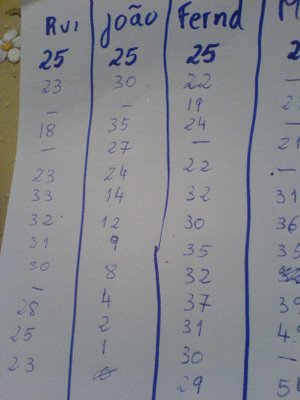 Rui João Fernd M
25 25 25
23 30 22 —
— — 19 2
18 35 24 —
— 27 — 21
23 24 22 —
33 14 32 31
32 12 30 36
31 9 35 35
30 8 32
— 4 37 39
28 2 31 4
25 1 30 —
23 29 5